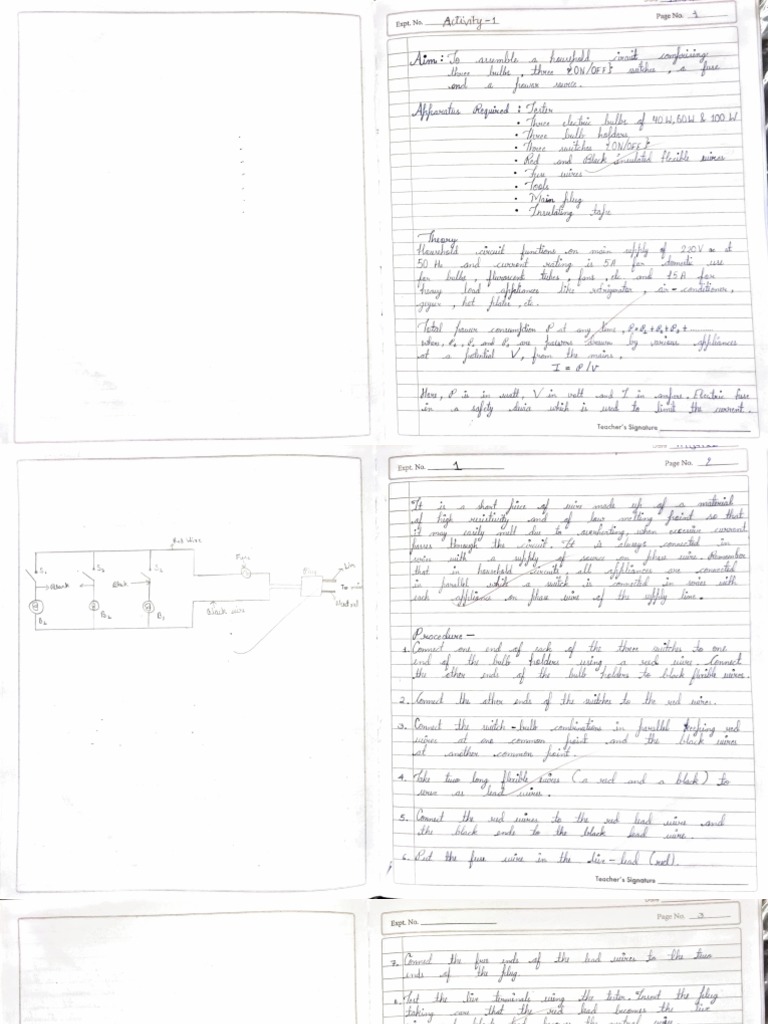 Expt. No. Activity-1
Page No. 1
Aim: To assemble a household circuit comprising
three bulbs, three (ON/OFF) switches, a fuse
and a power source.
Apparatus Required: Tester
• Three electric bulbs of 40 W, 60 W & 100 W
• Three bulb holders
• Three switches (ON/OFF)
• Red and Black insulated flexible wires
• Fuse wires
• Tools
• Main plug
• Insulating tape
Theory
Household circuit functions on main supply of 220V at
50 Hz and current rating is 5A for domestic use
for bulbs, fluorescent tubes, fans, etc and 15A for
heavy load appliances like refrigerator, air-conditioner,
geyser, hot plates, etc.
Total power consumption P at any time,
where, and are powers drawn by various appliances
at a potential V, from the mains.
I = P/V
Here, P is in watt, V in volt and I in ampere. Electric fuse
in a safety device which is used to limit the current.
Teacher's Signature
Expt. No. 1
Page No. 2
It is a short piece of wire made up of a material
of high resistivity and of low melting point so that
it may easily melt due to overheating, when excessive current
passes through the circuit. It is always connected in
series with a supply of source on phase wire. Remember
that in household circuits all appliances are connected
in parallel while a switch is connected in series with
each appliance on phase wire of the supply line.
Red wire
Fuse
Plug
Live
S1
Black
S2
Black
S3
To
Neutral
B1
B2
B3
Black wire
Procedure -
1. Connect one end of each of the three switches to one
end of the bulb holders using a red wire. Connect
the other ends of the bulb holders to black flexible wires.
2. Connect the other ends of the switches to the red wires.
3. Connect the switch-bulb combinations in parallel red
wires at one common point and the black wires
at another common point.
4. Take two long flexible wires (a red and a black) to
serve as lead wires.
5. Connect the red wires to the red lead wire and
the black ends to the black lead wire.
6. Put the fuse wire in the live-lead (red).
Teacher's Signature
Expt. No.
Page No. 3
7. Connect the free ends of the lead wires to the two
ends of the plug.
8. Test the live terminals using the tester. Insert the plug
taking care that the red lead becomes the live